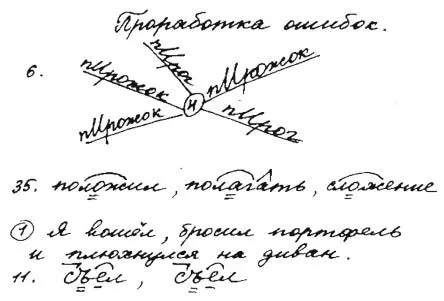 Проработка ошибок.
6.
пИрог
пИрожок пИрожок
и
пИрожок пИрог
35. положил, полагать, сложение
1 Я вошёл, бросил портфель
и плюхнулся на диван.
11. съел, съел